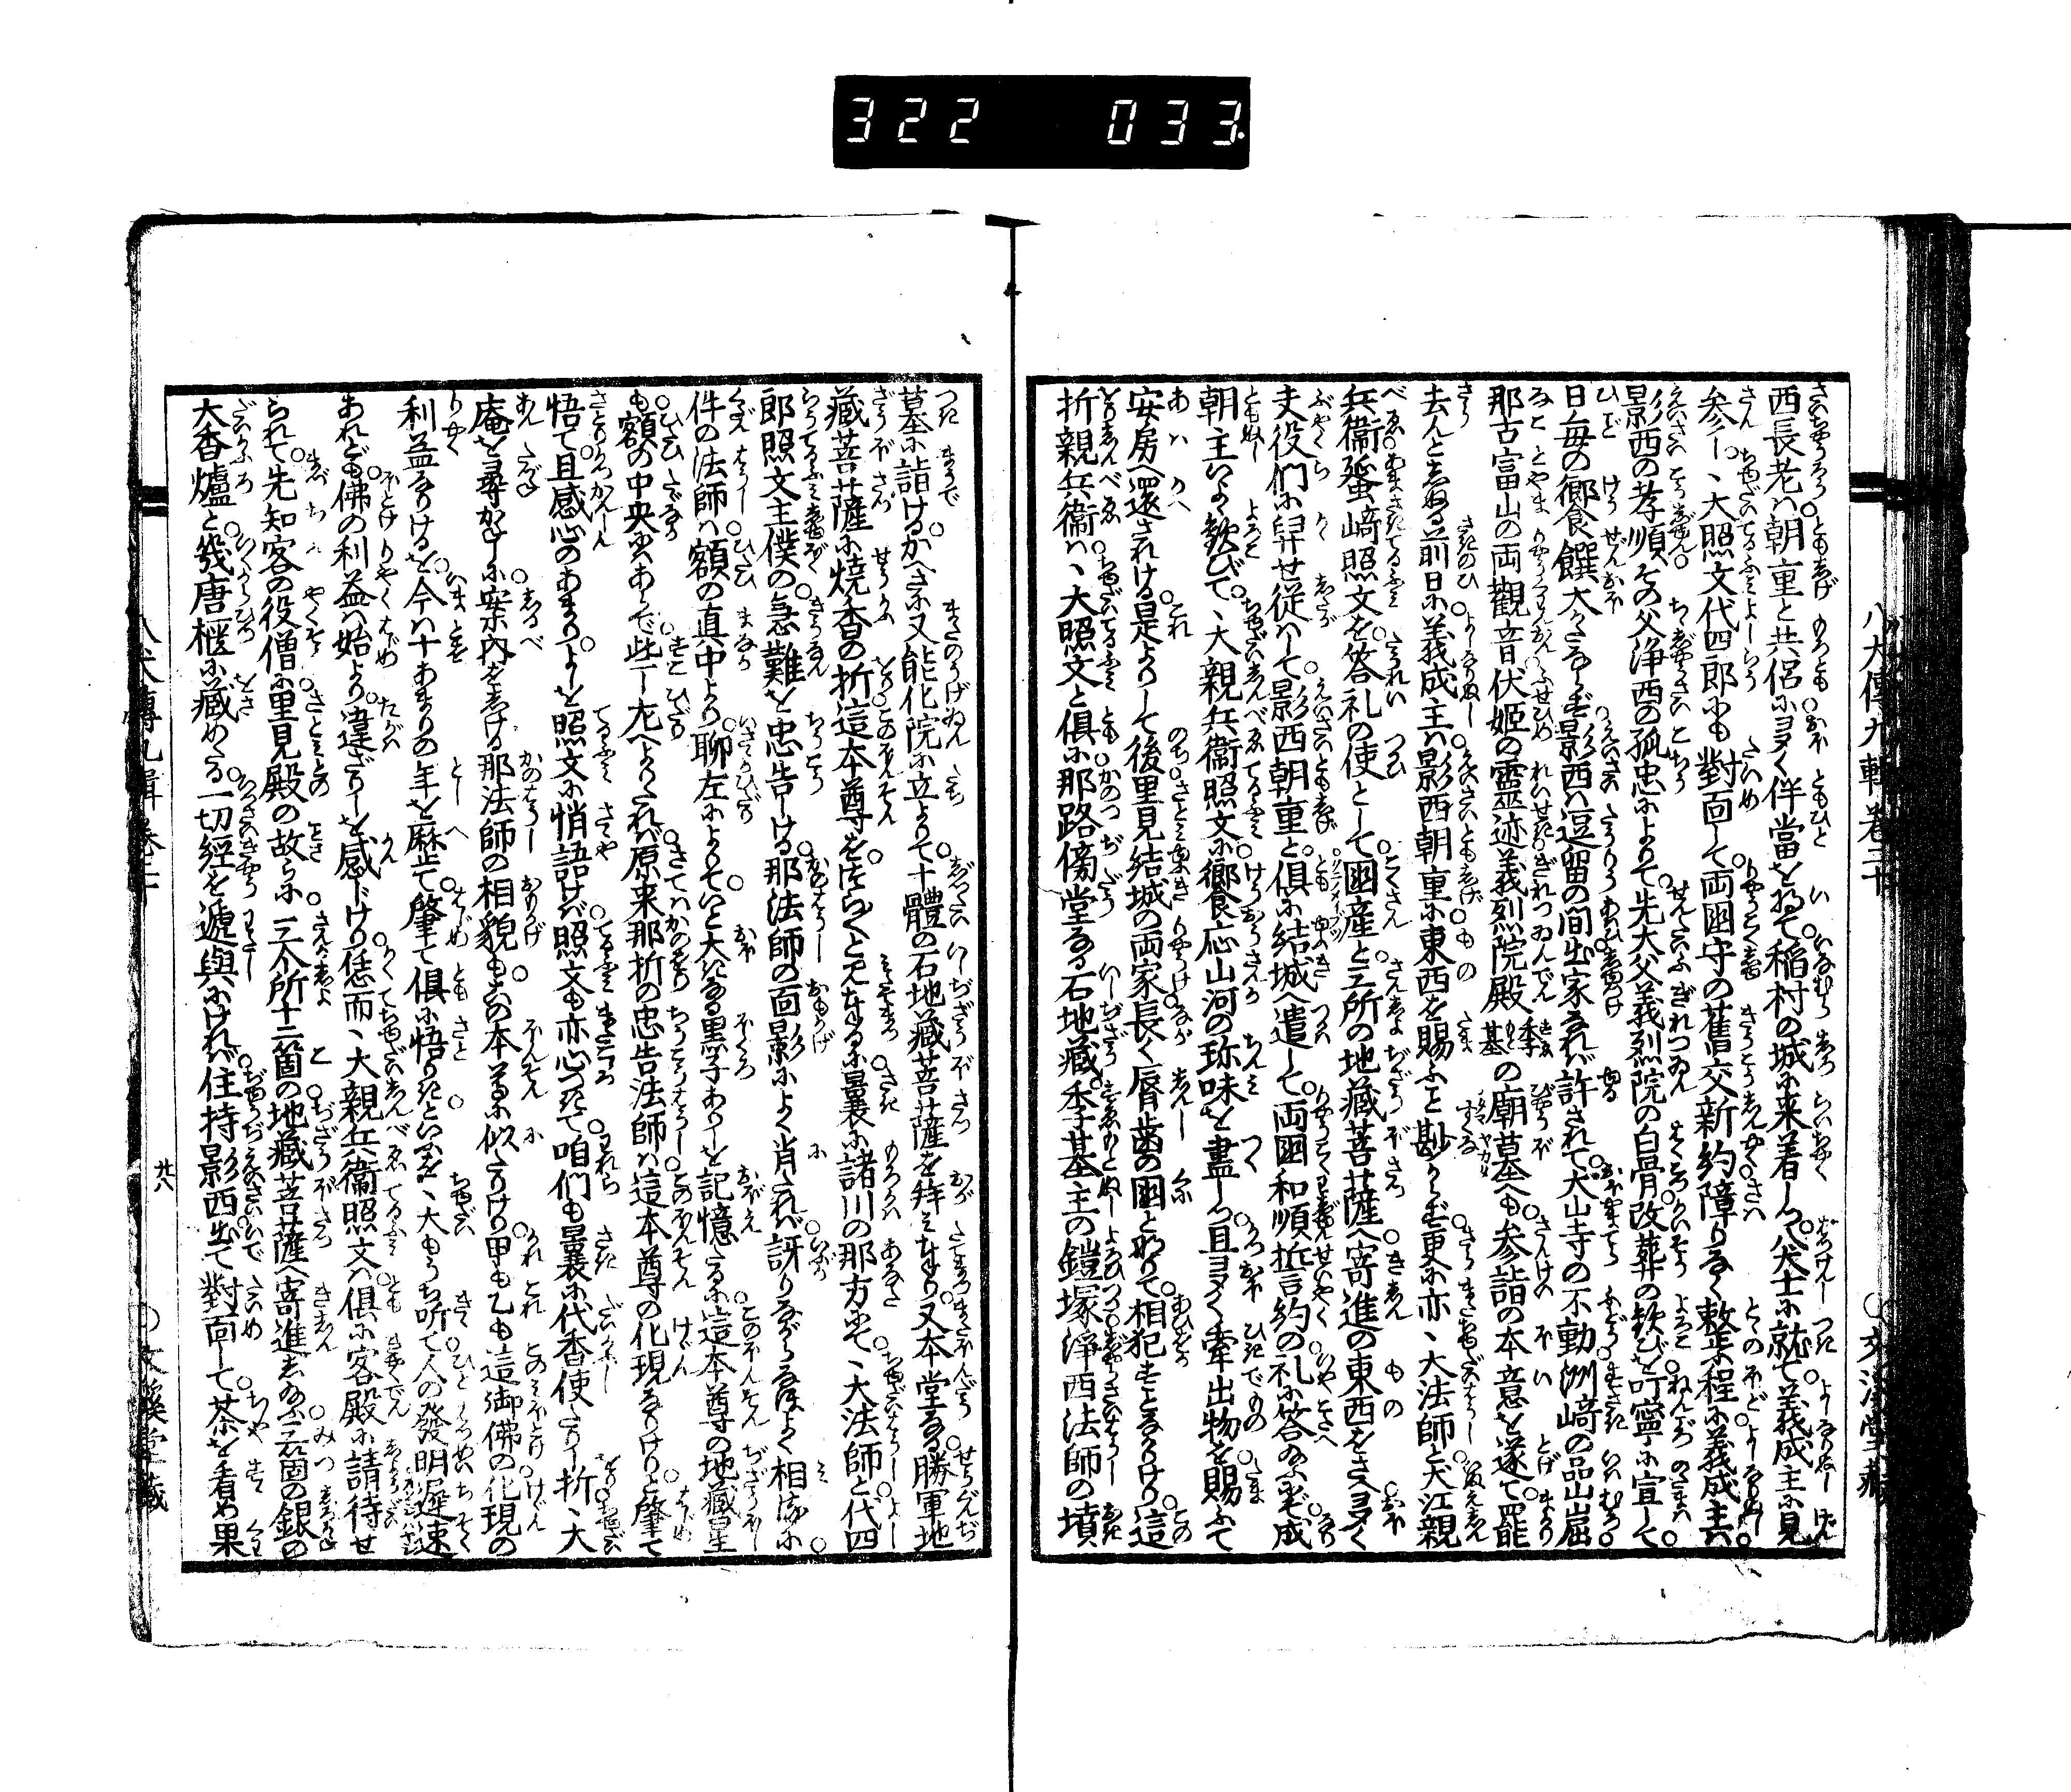 322 033
八犬傳九輯卷三十
文溪堂藏
西長老ハ朝重と共侶に多く伴當をゐて稲村の城に来着しつ八犬士に就て義成主に見
参しヽ大照文代四郎にも對面して両國守の舊交新約障りなく整ふ程に義成主ハ
影西の孝順その父淨西の孤忠によりて先大父義烈院の白骨改葬の歓びを叮寧に宣して
日毎の郷食饌大かたならず影西ハ逗留の間出家なれバ許されて犬山寺の不動洲﨑の品山窟
那古富山の両觀音伏姫の靈迹義烈院殿季基の廟墓へも参詣の本意を遂て罷
去んとしぬる前日に義成主ハ影西朝重に東西を賜ふと尠からず更に亦ヽ大法師と犬江親
兵衞蜑﨑照文を答礼の使として國産と三所の地藏菩薩へ寄進の東西をさへ多く
夫役們に舁せ従ハして影西朝重と倶に結城へ遣して両國和順誓約の礼に答給ふぞ成
朝主いよゝ歓びてヽ大親兵衞照文に郷食応山河の珍味を盡しつ且多く牽出物を賜ふて
安房へ還されける是よりして後里見結城の両家長く脣齒の國となりて相犯すことなかりけり這
折親兵衞ハヽ大照文と倶に那路傍堂なる石地藏季基主の鎧塚淨西法師の墳
墓に詣けるかへさに又能化院に立よりて十體の石地藏菩薩を拜みまつり又本堂なる勝軍地
藏菩薩に燒香の折這本尊をつらつらと見まつるに曩に諸川の那方にてヽ大法師と代四
郎照文主僕の急難を忠告しける那法師の面影によく肖たれバ訝りながらなほよく相るに
件の法師ハ額の真中より聊左によりていと大きなる黒子ありしを記憶たるに這本尊の地藏
も額の中央にハあらで些し左へよりたれバ原来那折の忠告法師ハ這本尊の化現なりけりと肇て
悟て且感心のあまりよしを照文に悄語けバ照文も亦心つきて咱們も曩に代香使たりし折ヽ大
庵を尋かねしに案内をしける那法師の相貌もこの本尊に似たりけり甲も乙も這御佛の化現の
利益なりけるを今ハ十あまりの年を歴て肇て倶に悟りきといふをヽ大もうち听て人の發明遲速
あれども佛の利益ハ始より違ざりしを感じけり恁而ヽ大親兵衞照文ハ倶に客殿に請待せ
られて先知客の役僧に里見殿の故らに三个所十二箇の地藏菩薩へ寄進し給ふ三箇の銀の
大香爐と幾唐櫃に藏めたる一切經を遞與にけれバ住持影西出て對面して茶を看め果
八犬傳九輯卷三十
廿八
文溪堂藏